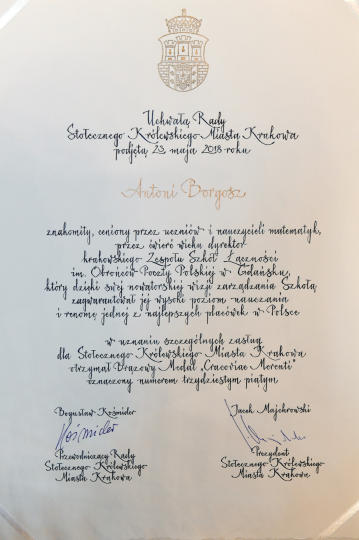 Uchwałą Rady
Stołecznego Królewskiego Miasta Krakowa
podjętą 23 maja 2018 roku
Antoni Borgosz
znakomity, ceniony przez uczniów i nauczycieli matematyk,
przez ćwierć wieku dyrektor
krakowskiego Zespołu Szkół Łączności
im. Obrońców Poczty Polskiej w Gdańsku,
który dzięki swej nowatorskiej wizji zarządzania Szkołą
zagwarantował jej wysoki poziom nauczania
i renomę jednej z najlepszych placówek w Polsce
w uznaniu szczególnych zasług
dla Stołecznego Królewskiego Miasta Krakowa
otrzymał Brązowy Medal „Cracoviae Merenti”
oznaczony numerem trzydziestym piątym
Bogusław Kośmider
Jacek Majchrowski
Kośmider
Przewodniczący Rady
Stołecznego Królewskiego
Miasta Krakowa
Prezydent
Stołecznego Królewskiego
Miasta Krakowa